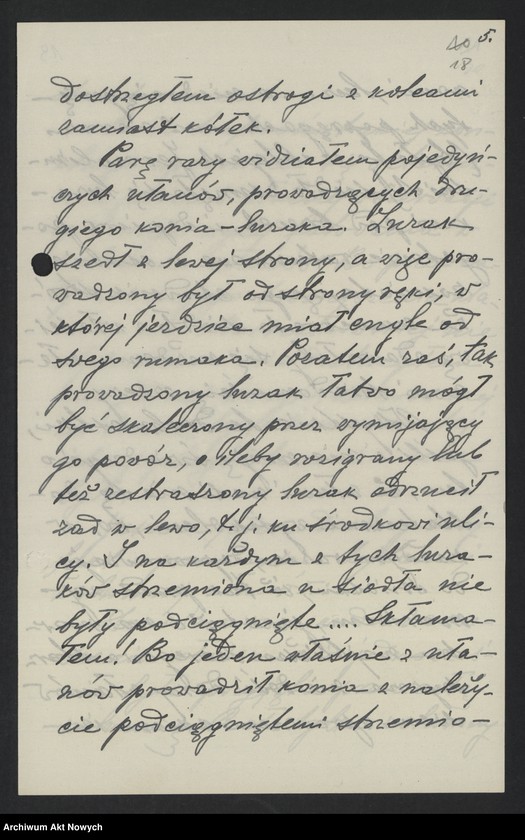 5.
20
18
dostrzegłem ostrogi z kolcami
zamiast kółek.
Parę razy widziałem pojedyń-
czych ułanów, prowadzących dru-
giego konia – luzaka. Luzak
szedł z lewej strony, a więc pro-
wadzony był od strony ręki, w
której jeździec miał cugle od
swego rumaka. Pozatem zaś, tak
prowadzony luzak łatwo mógł
być skaleczony przez wymijający
go powóz, o ileby rozigrany lub
też zestraszony luzak odrzucił
zad w lewo, t. j. ku środkowi uli-
cy. I na każdym z tych luza-
ków strzemiona u siodła nie
były podciągnięte .... Skłama-
łem! Bo jeden właśnie z uła-
nów prowadził konia z należy-
cie podciągniętemi strzemio-
Archiwum Akt Nowych